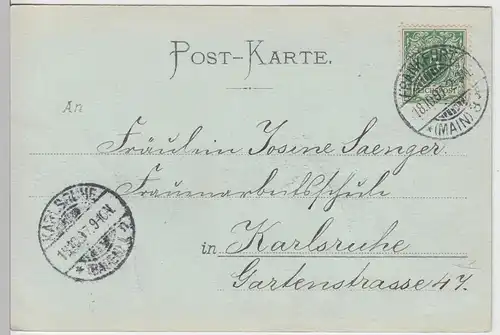 POST-KARTE.
An
Fräulein Josine Saenger
Frauenarbeitsschule
in Karlsruhe
Gartenstrasse 47.
FRANKFURT
(MAIN)
KARLSRUHE